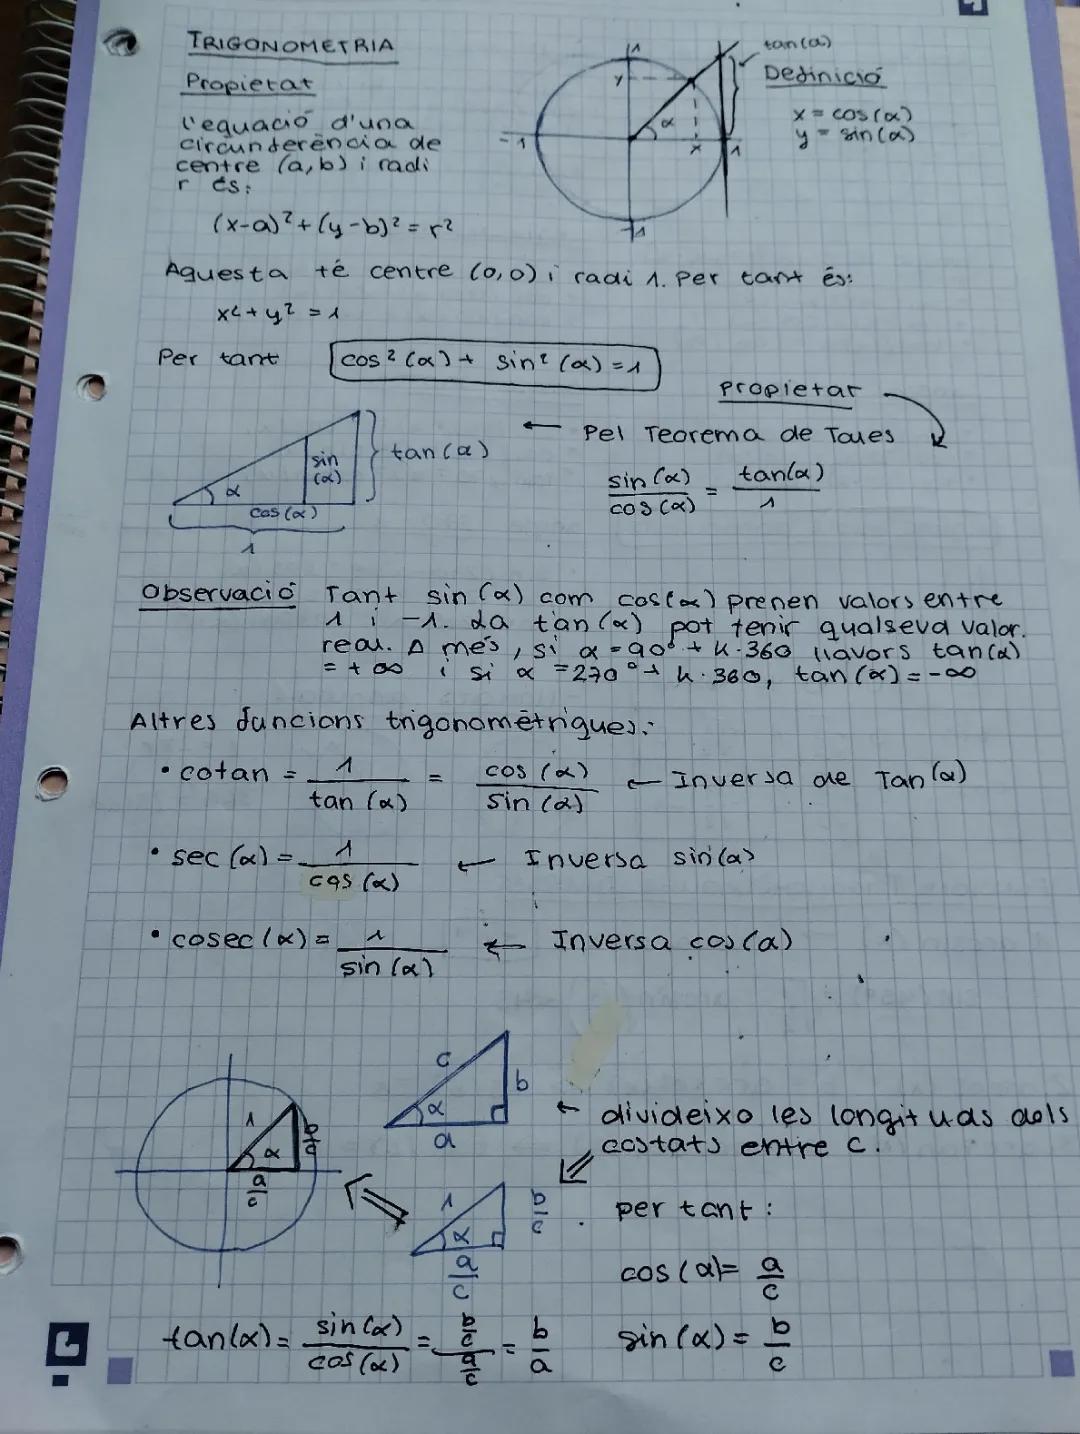 TRIGONOMETRIA
Propietat
l'equació d'una
circunferència de
centre (a,b) i radi
r és:
(x-a)² + (y-b)² = r²
1
y
α
-1
x
1
-1
tan(α)
Definició
x = cos(α)
y = sin(α)
Aquesta té centre (0,0) i radi 1. Per tant és:
x² + y² = 1
Per tant cos²(α) + sin²(α) = 1
Propietat
α
sin
(α)
cos(α)
1
tan(α)
← Pel Teorema de Tales
sin(α)/cos(α) = tan(α)/1
Observació Tant sin(α) com cos(α) prenen valors entre
1 i -1. La tan(α) pot tenir qualseva valor.
real. A més, si α = 90° + k·360 llavors tan(α)
= +∞ i si α = 270° + k·360, tan(α) = -∞
Altres funcions trigonomètriques:
• cotan = 1/tan(α) = cos(α)/sin(α) ← Inversa de Tan(α)
• sec(α) = 1/cos(α) ← Inversa sin(α)
• cosec(α) = 1/sin(α) ← Inversa cos(α)
1
α
b/c
a/c
c
b
α
a
← divideixo les longituds dels
costats entre c.
1
α
b/c
a/c
per tant:
cos(α) = a/c
tan(α) = sin(α)/cos(α) = b/c / a/c = b/a
sin(α) = b/c